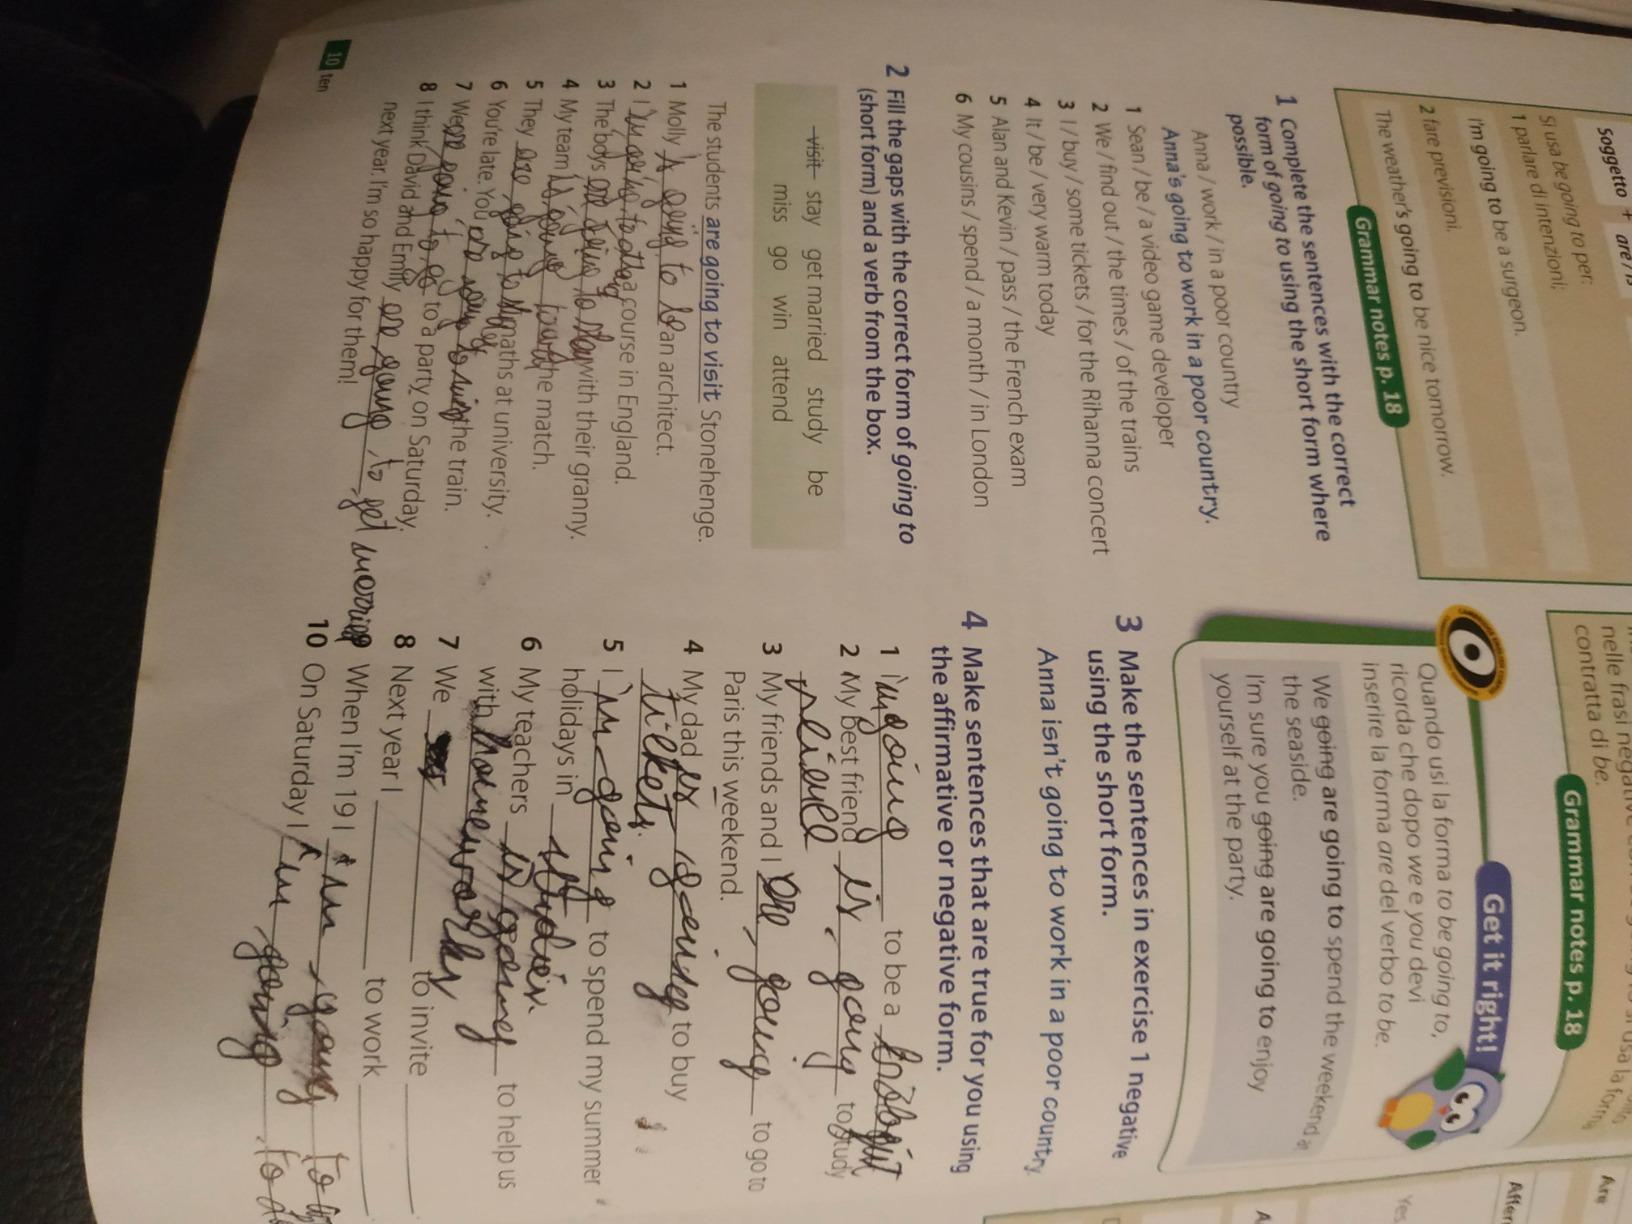 soggetto + are/is
Si usa be going to per:
1 parlare di intenzioni;
I'm going to be a surgeon.
2 fare previsioni.
The weather's going to be nice tomorrow.
Grammar notes p. 18
1 Complete the sentences with the correct
form of going to using the short form where
possible.
Anna / work / in a poor country
Anna's going to work in a poor country.
1 Sean / be / a video game developer
2 We / find out / the times / of the trains
3 I / buy / some tickets / for the Rihanna concert
4 It / be / very warm today
5 Alan and Kevin / pass / the French exam
6 My cousins / spend / a month / in London
2 Fill the gaps with the correct form of going to
(short form) and a verb from the box.
visit stay get married study be
miss go win attend
The students are going to visit Stonehenge.
1 Molly 's going to be an architect.
2 I 'm going to a course in England.
3 The boys are going to stay with their granny.
4 My team is going to the match.
5 They are going to maths at university.
6 You're late. You are going to the train.
7 We are going to go to a party on Saturday.
8 I think David and Emily are going to get married
next year. I'm so happy for them!
10 ten
nelle frasi negative
contratta di be.
Grammar notes p. 18
Get it right!
Quando usi la forma to be going to,
ricorda che dopo we e you devi
inserire la forma are del verbo to be.
We going are going to spend the weekend
the seaside.
I'm sure you going are going to enjoy
yourself at the party.
3 Make the sentences in exercise 1 negative
using the short form.
Anna isn't going to work in a poor country.
4 Make sentences that are true for you using
the affirmative or negative form.
1 I'm going to be a
2 My best friend is going to study
3 My friends and I are going to go to
Paris this weekend.
4 My dad is going to buy
tikets.
5 I 'm going to spend my summer
holidays in
6 My teachers is going to help us
with homeworks
7 We to invite
8 Next year I to work
9 When I'm 19 I 'm going to
10 On Saturday I 'm going to